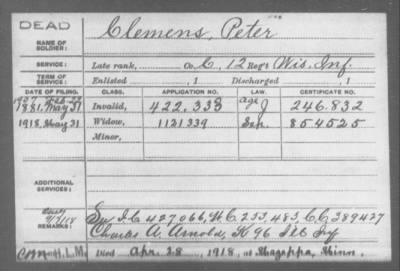 DEAD
NAME OF SOLDIER: Clemens, Peter
SERVICE: Late rank, Co. C, 12 Reg't Wis. Inf.
TERM OF SERVICE: Enlisted , 1 Discharged , 1
DATE OF FILING. CLASS. APPLICATION NO. LAW. CERTIFICATE NO.
1881, May 31 Invalid, 422.333 age J 246.832
1918, May 31 Widow, 1121339 854525
Minor,
ADDITIONAL SERVICES:
REMARKS: I.C. 427066, W.C. 253,483, C.C. 389427
Charles A. Arnold, K 96 Ill Inf
Died Apr. 28, 1918, at Minn.